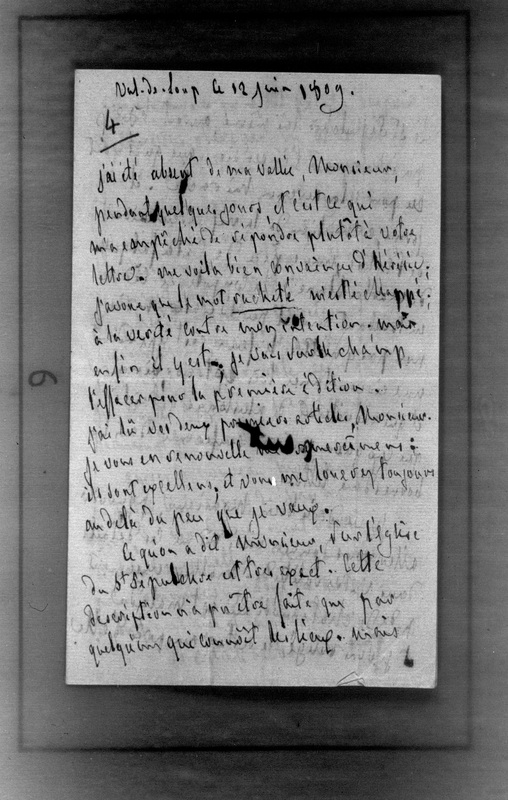 Val-de-Loup le 12 juin 1809.
4
j'ai été absent de ma vallée, Monsieur,
pendant quelques jours, et c'est ce qui
m'a empêché de répondre plutôt à votre
lettre. me voilà bien convaincu d'hérésie;
j'avoue que le mot racheté m'est échappé;
à la vérité contre mon intention. mais
enfin il y est; je vais sur le champ
l'effacer pour la première édition.
j'ai lu vos deux premiers articles, Monsieur.
je vous en renouvelle mes remerciemens:
ils sont excellens, et vous me louez toujours
au delà du peu que je vaux.
Ce qu'on a dit, Monsieur, sur l'Eglise
du St Sépulchre est très exact. Cette
description n'a pu être faite que par
quelqu'un qui connoît les lieux. mais
9